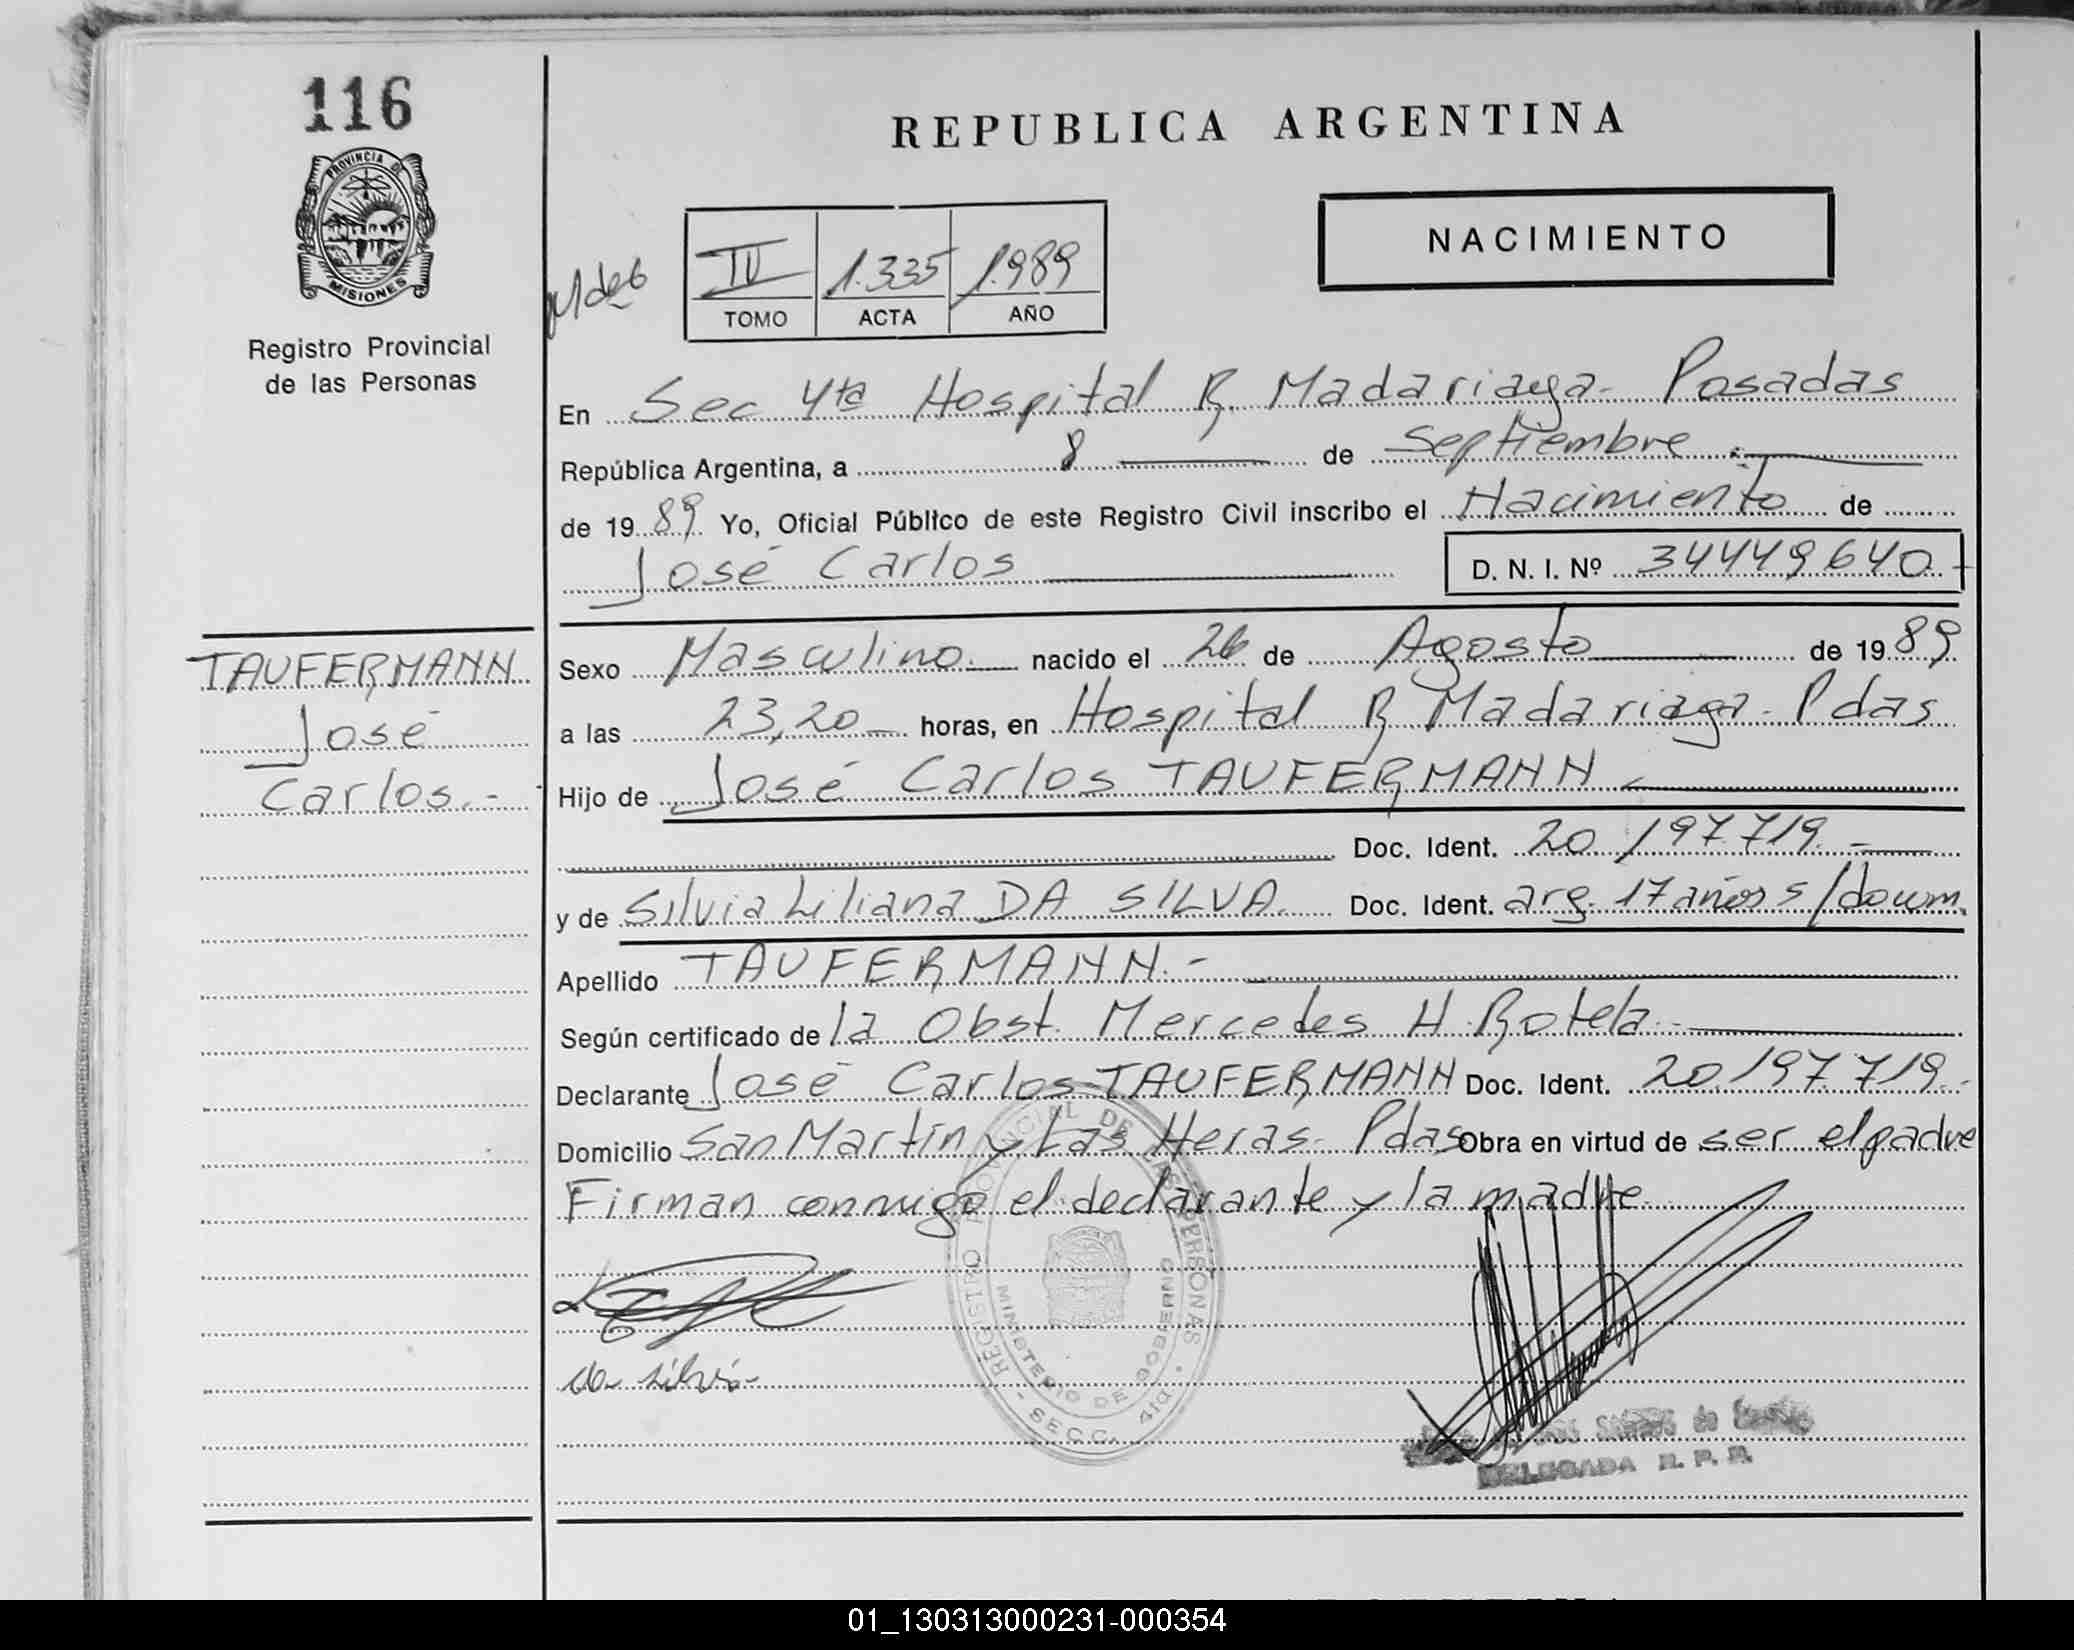 116
PROVINCIA DE
MISIONES
Registro Provincial
de las Personas
REPUBLICA ARGENTINA
NACIMIENTO
IV 1.335 1.989
TOMO ACTA AÑO
En Sec 4ta Hospital R. Madariaga - Posadas
República Argentina, a 8 de Septiembre
de 1989 Yo, Oficial Público de este Registro Civil inscribo el Nacimiento de
José Carlos D. N. I. Nº 34449640
TAUFERMANN
José
Carlos.-
Sexo Masculino nacido el 26 de Agosto de 1989
a las 23,20 horas, en Hospital R Madariaga - Pdas
Hijo de José Carlos TAUFERMANN
Doc. Ident. 20.197.719.-
y de Silvia Liliana DA SILVA. Doc. Ident. arg. 17 años s/docum.
Apellido TAUFERMANN.-
Según certificado de la Obst. Mercedes H. Rotela
Declarante José Carlos TAUFERMANN Doc. Ident. 20.197.719.-
Domicilio San Martín y Las Heras - Pdas Obra en virtud de ser el padre
Firman conmigo el declarante y la madre
da silvia
REGISTRO PROVINCIAL DE LAS PERSONAS
MINISTERIO DE GOBIERNO
- SECC. 4ta -
DELEGADA R. P. P.
01_130313000231-000354